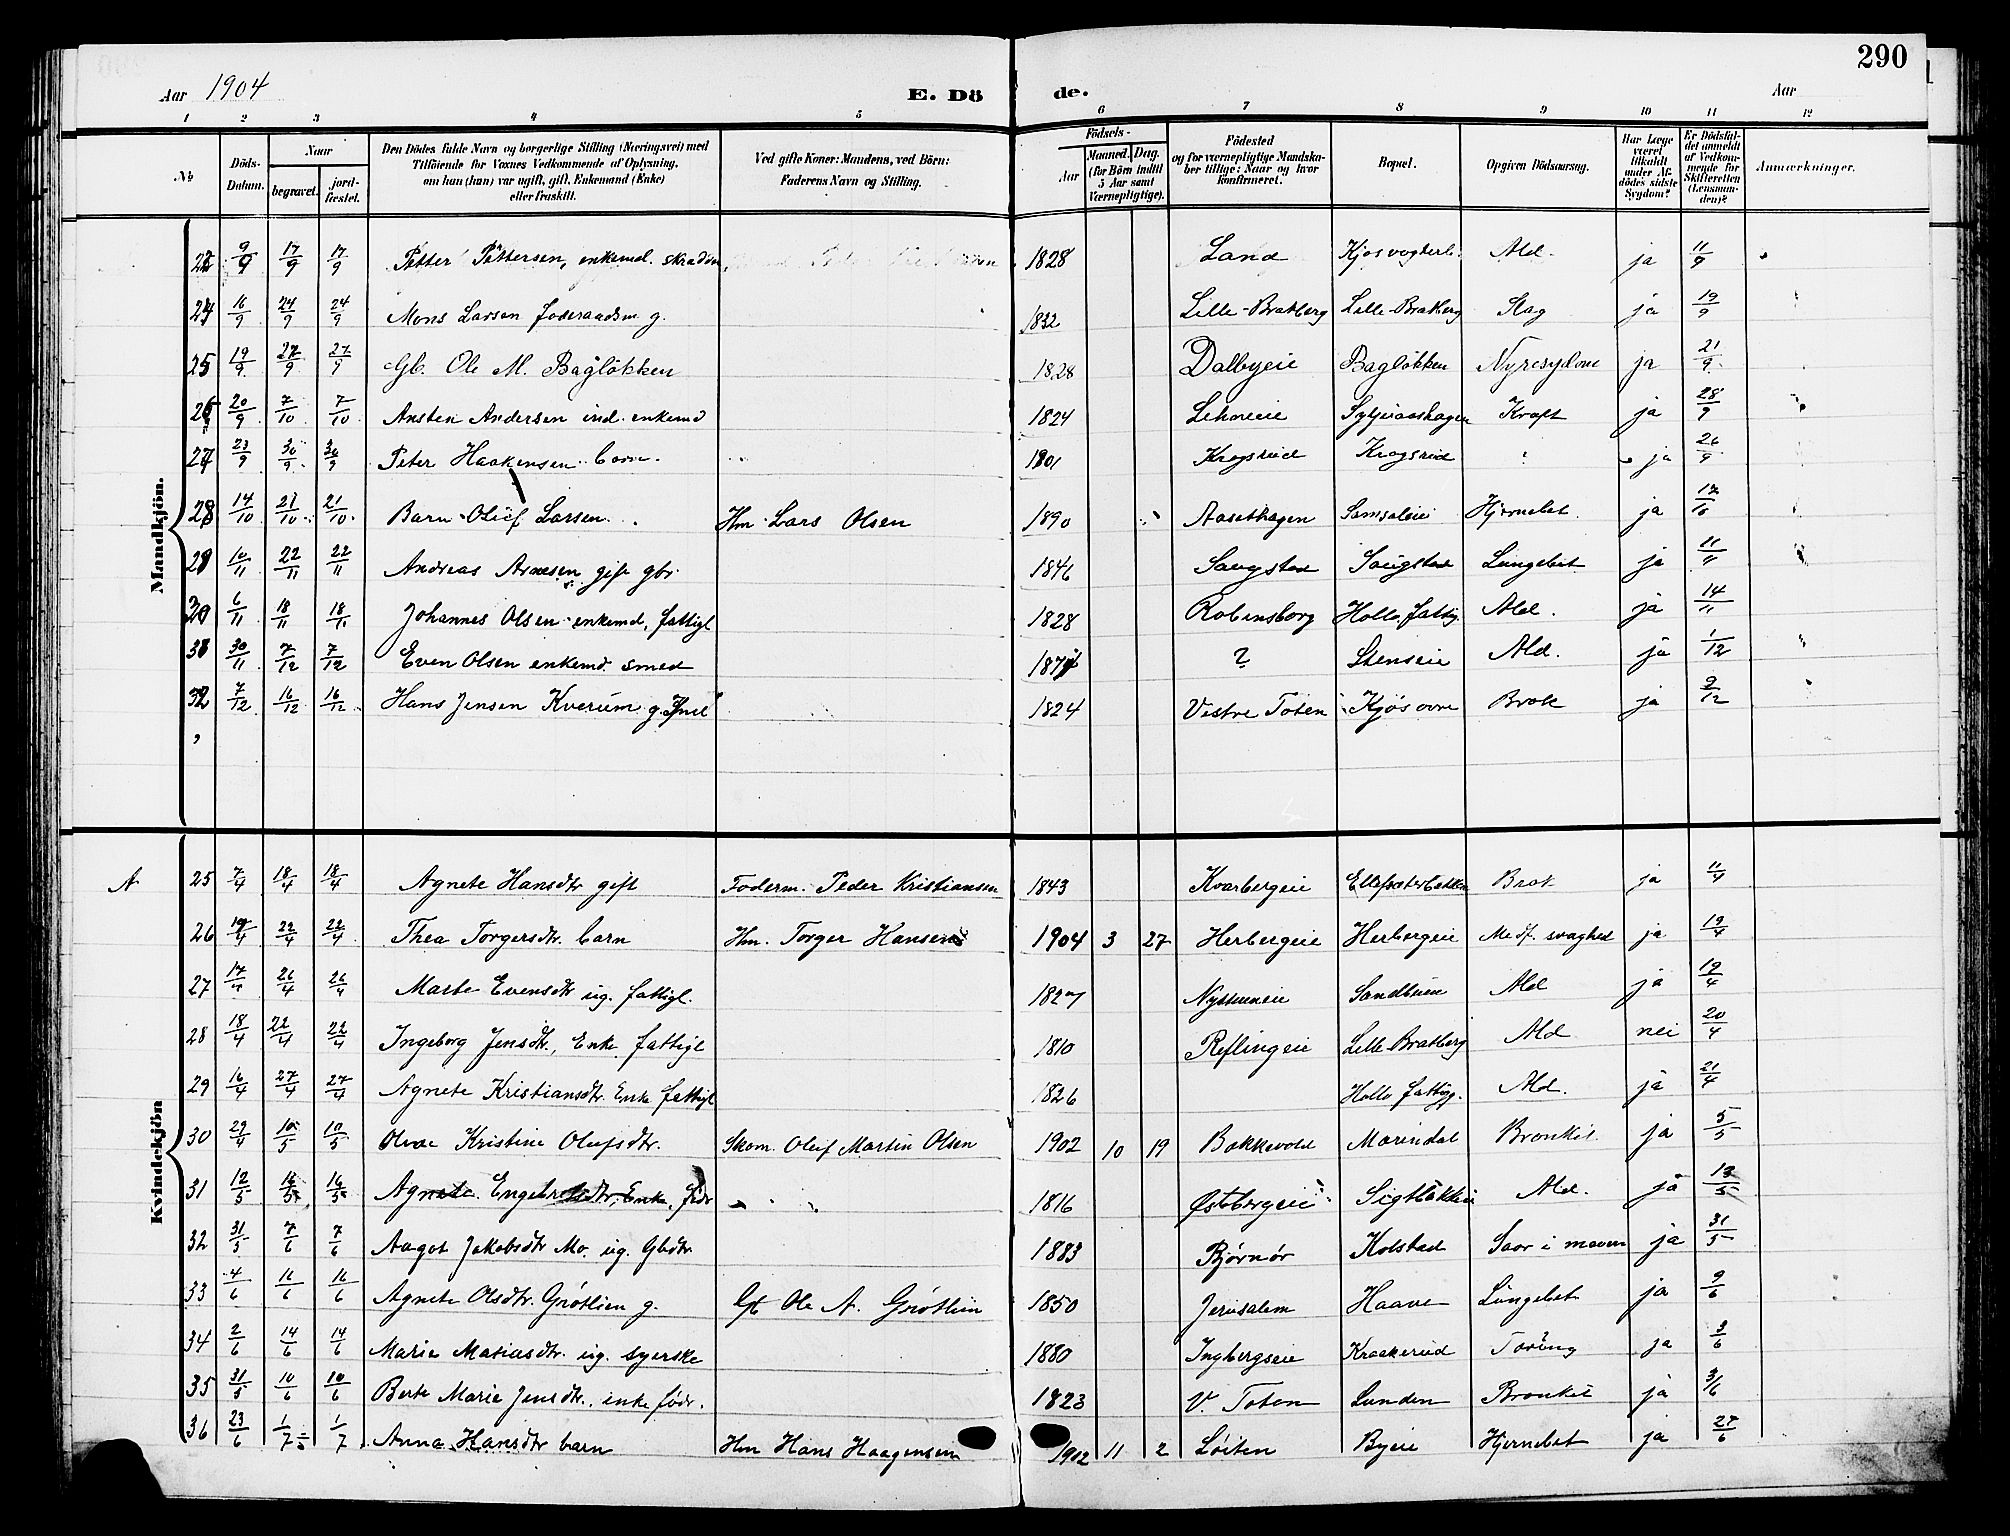 290
Aar 1904
E. Dö de.
Aar
1 2 3 4 5 6 7 8 9 10 11 12
№
Döds-Datum.
Naar
begravet.
jord-fæstet.
Den Dödes fulde Navn og borgerlige Stilling (Næringsvei) med
Tilföiende for Voxnes Vedkommende af Oplysning,
om han (hun) var ugift, gift, Enkemand (Enke)
eller fraskilt.
Ved gifte Koner: Mandens, ved Börn:
Faderens Navn og Stilling.
Födsels-
Aar
Maaned. Dag.
(for Börn indtil
5 Aar samt
Værnepligtige).
Födested
og for værnepligtige Mandska-
ber tillige: Naar og hvor
konfirmeret.
Bopæl.
Opgiven Dödsaarsag.
Har Læge
været
tilkaldt
under Af-
dödes sidste
Sygdom?
Er Dödsfal-
det anmeldt
af Vedkom-
mende for
Skifteretten
(Lensman-
den)?
Anmærkninger.
Mandkjön.
9/9 17/9 17/9 Petter Pettersen, enkemd. skrædder 1828 Land Kjosvogterb. Ald. ja 11/9
24 16/9 24/9 24/9 Mons Larsen foderaadsm g. 1832 Lille-Bratberg Lille-Bratberg Slag ja 19/9
25 19/9 27/9 27/9 Gb. Ole M. Bagløkken 1828 Dalbyeie Bagløkken Nyresydom ja 21/9
26 20/9 7/10 7/10 Ansten Andersen ind. enkemd 1824 Kræft ja 28/9
27 23/9 30/9 30/9 Peter Haakensen barn. 1901 Krogsrud Krogsrud ? ja 26/9
28 14/10 21/10 21/10 Barn Oluf Larsen Hm. Lars Olsen 1890 Aasethagen Samsaleie Hjernebet. ja 17/10
29 10/11 22/11 22/11 Andreas Arnesen gift gbr. 1846 Saugstad Saugstad Lungebet ja 11/11
30 6/11 18/11 18/11 Johannes Olsen enkemd, fattigl 1828 Robensborg Hollo fattig. Ald. ja 14/11
31 30/11 7/12 7/12 Even Olsen enkemd. smed ? Stenseie Ald. ja 1/12
32 7/12 16/12 16/12 Hans Jensen Kverum g. 1824 Vestre Toten Kjøs øvre Brok ja 9/12
Kvindekjön
A. 25 7/4 18/4 18/4 Agnete Hansdtr gift Foderm. Peder Kristiansen 1843 Kvarbergeie Ellefsæterbakken Brok ja 11/4
26 22/4 22/4 Thea Torgersdtr. barn Hm. Torger Hansen 1904 3 27 Herbergeie Herbergeie Medf. svaghed ja 19/4
27 17/4 26/4 26/4 Marte Evensdtr ug. fattigl. 1827 Nystueneie Sandbuen Ald ja 19/4
28 18/4 22/4 22/4 Ingeborg Jensdtr., Enke fattigl 1810 Reflingeie Lille Bratberg Ald nei 20/4
29 16/4 27/4 27/4 Agnete Kristiansdtr. Enke fattigl 1826 Hollo fattigg. Ald. ja 21/4
30 29/4 10/5 10/5 Olva Kristine Olufsdtr. Skom. Oluf Martin Olsen 1902 10 19 Bakkevold Marindal Bronkit. ja 5/5
31 12/5 16/5 16/5 Agnete Engebretsdtr, Enke, fødr 1816 Østbergeie Sigtløkken Ald. ja 13/5
32 31/5 7/6 7/6 Aagot Jakobsdtr Mo. ug. Gbdtr 1883 Bjørnør Kolstad Saar i maven ja 31/5
33 4/6 16/6 16/6 Agnete Olsdtr. Grøtlien g. Gb Ole A. Grøtlien 1850 Jerusalem Haave Lungebet ja 9/6
34 2/6 14/6 14/6 Marie Matiasdtr. ug. syerske 1880 Ingbergseie Kraakerud Tæring ja 3/6
35 31/5 10/6 10/6 Berte Marie Jensdtr., enke fødr. 1823 V. Toten Lunden Bronkit ja 3/6
36 23/6 1/7 1/7 Anna Hansdtr barn Hm Hans Haagensen 1902 11 2 Løiten Byeie Hjernebet ja 27/6